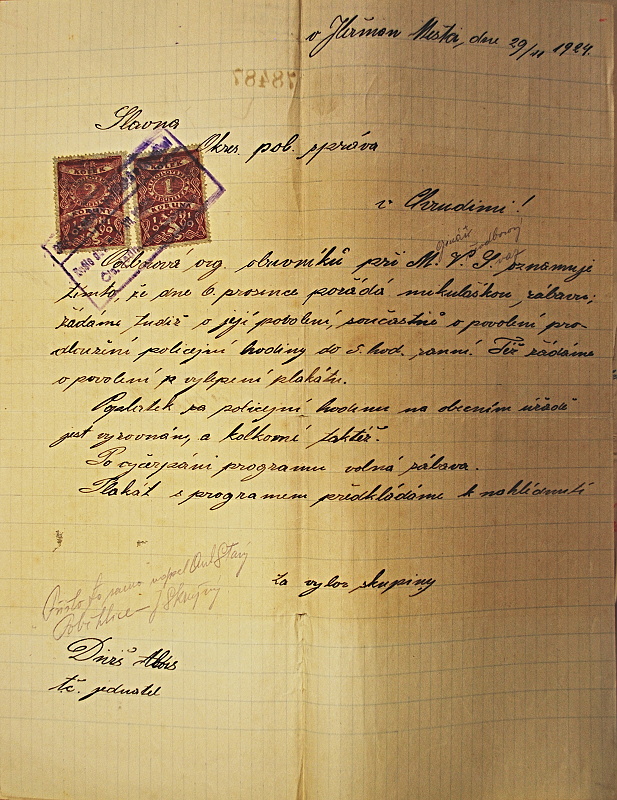 v Heřman Městci, dne 29/11 1924.
78487
Slavna
Okres. pol. správa
v Chrudimi!
KOLEK
2
KORUNY
KOLEK
1
KORUNA
Odborová org. obuvníků při M. V. S. oznamuje
tímto že dne 6. prosince pořádá mikulášskou zábavu;
žádáme tudiž o její povolení, současně o povolení pro-
dloužení policejní hodiny do 5. hod. ranní. Též žádáme
o povolení k vylepení plakátů.
Poplatek za policejní hodinu na obecním úřadě
jest vyrovnány a kolkovné taktéž.
Po vyčerpání programu volná zábava.
Plakát s programem předkládáme k nahlédnutí
za vybor skupiny
Alois
tč. jednatel